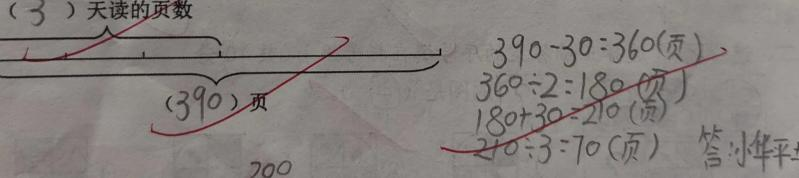 （3）天读的页数
（390）页
390-30=360(页)
360÷2=180(页)
180+30=210(页)
210÷3=70(页)
答:小华平
200